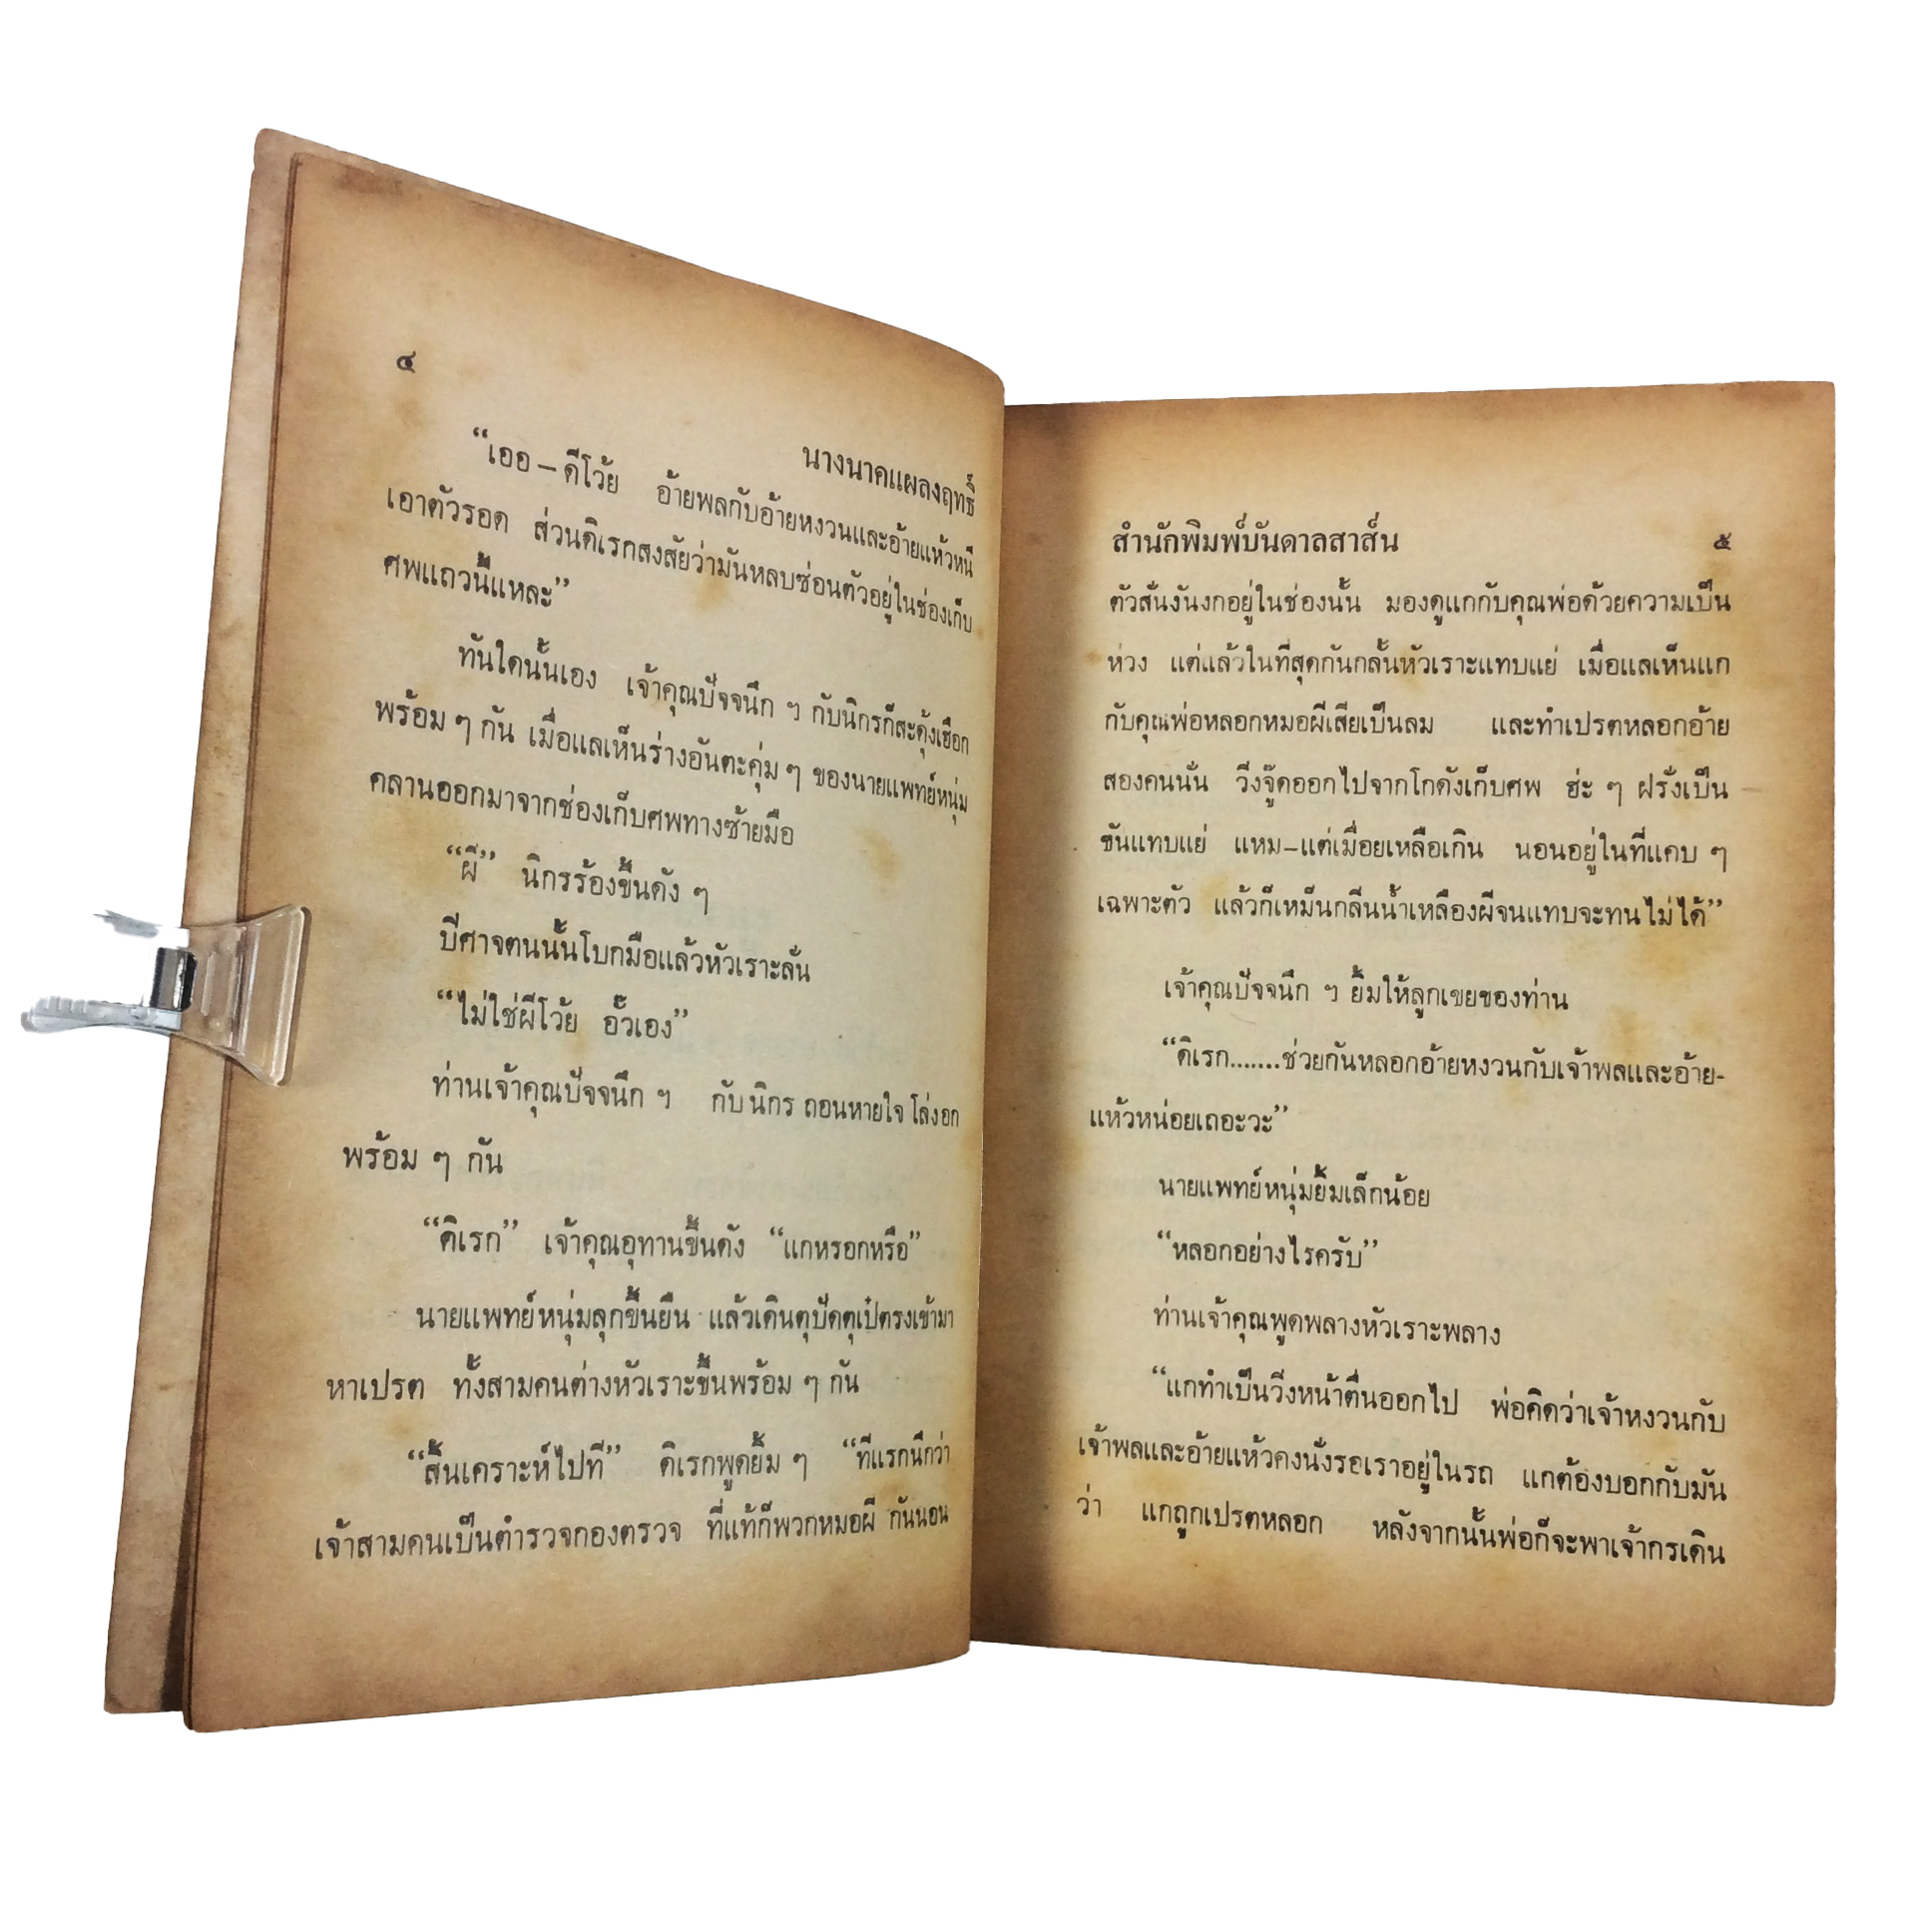 ๔
นางนาคแผลงฤทธิ์
“เออ – ดีโว้ย อ้ายพลกับอ้ายหงวนและอ้ายแห้วหนี
เอาตัวรอด ส่วนดิเรกสงสัยว่ามันหลบซ่อนตัวอยู่ในช่องเก็บ
ศพแถวนี้แหละ”
ทันใดนั้นเอง เจ้าคุณปัจจนึก ฯ กับนิกรก็สะดุ้งเฮือก
พร้อม ๆ กัน เมื่อแลเห็นร่างอันตะคุ่ม ๆ ของนายแพทย์หนุ่ม
คลานออกมาจากช่องเก็บศพทางซ้ายมือ
“ผี” นิกรร้องขึ้นดัง ๆ
ปีศาจตนนั้นโบกมือแล้วหัวเราะลั่น
“ไม่ใช่ผีโว้ย อั๊วเอง”
ท่านเจ้าคุณปัจจนึก ฯ กับนิกร ถอนหายใจ โล่งอก
พร้อม ๆ กัน
“ดิเรก” เจ้าคุณอุทานขึ้นดัง “แกหรอกหรือ”
นายแพทย์หนุ่มลุกขึ้นยืน แล้วเดินตุปัดตุเป๋ตรงเข้ามา
หาเปรต ทั้งสามคนต่างหัวเราะขึ้นพร้อม ๆ กัน
“สิ้นเคราะห์ไปที” ดิเรกพูดยิ้ม ๆ “ทีแรกนึกว่า
เจ้าสามคนเป็นตำรวจกองตรวจ ที่แท้ก็พวกหมอผี กันนอน
สำนักพิมพ์บันดาลสาส์น ๕
ตัวสั่นงันงกอยู่ในช่องนั้น มองดูแกกับคุณพ่อด้วยความเป็น
ห่วง แต่แล้วในที่สุดกันกลั้นหัวเราะแทบแย่ เมื่อแลเห็นแก
กับคุณพ่อหลอกหมอผีเสียเป็นลม และทำเปรตหลอกอ้าย
สองคนนั่น วิ่งจู๊ดออกไปจากโกดังเก็บศพ ฮ่ะ ๆ ฝรั่งเป็น
ขันแทบแย่ แหม–แต่เมื่อยเหลือเกิน นอนอยู่ในที่แคบ ๆ
เฉพาะตัว แล้วก็เหม็นกลิ่นน้ำเหลืองผีจนแทบจะทนไม่ได้”
เจ้าคุณปัจจนึก ฯ ยิ้มให้ลูกเขยของท่าน
“ดิเรก.......ช่วยกันหลอกอ้ายหงวนกับเจ้าพลและอ้าย-
แห้วหน่อยเถอะวะ”
นายแพทย์หนุ่มยิ้มเล็กน้อย
“หลอกอย่างไรครับ”
ท่านเจ้าคุณพูดพลางหัวเราะพลาง
“แกทำเป็นวิ่งหน้าตื่นออกไป พ่อคิดว่าเจ้าหงวนกับ
เจ้าพลและอ้ายแห้วคงนั่งรอเราอยู่ในรถ แกต้องบอกกับมัน
ว่า แกถูกเปรตหลอก หลังจากนั้นพ่อก็จะพาเจ้ากรเดิน